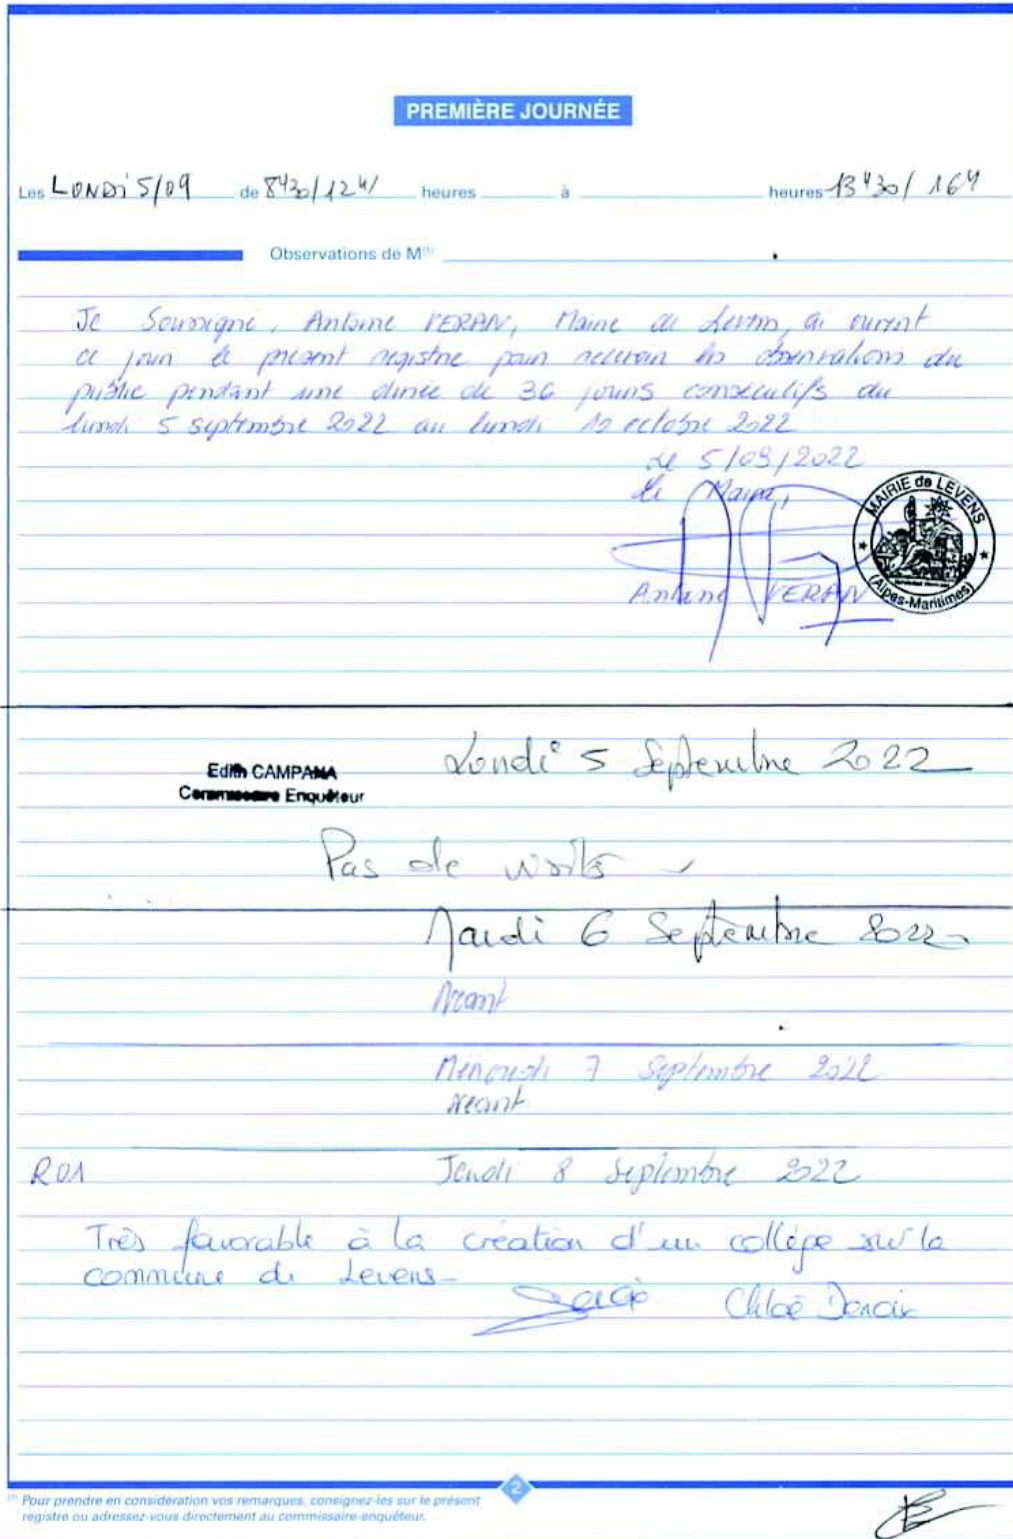 PREMIÈRE JOURNÉE
Les LUNDI 5/09 de 8H30/12H heures à heures 13H30/ 16H
Observations de M(1)
Je soussigné, Antoine VERAN, Maire de Levens, ai ouvert
ce jour le présent registre pour recevoir les observations du
public pendant une durée de 36 jours consécutifs du
lundi 5 septembre 2022 au lundi 10 octobre 2022
Le 5/09/2022
Le Maire,
Antoine VERAN
MAIRIE de LEVENS
(Alpes-Maritimes)
Lundi 5 Septembre 2022
Edith CAMPANA
Commissaire Enquêteur
Pas de visite -
Mardi 6 Septembre 2022
Néant
Mercredi 7 Septembre 2022
Néant
R01 Jeudi 8 Septembre 2022
Très favorable à la création d'un collège sur la
commune de Levens-
Chloé
2
(1) Pour prendre en considération vos remarques, consignez-les sur le présent
registre ou adressez-vous directement au commissaire-enquêteur.